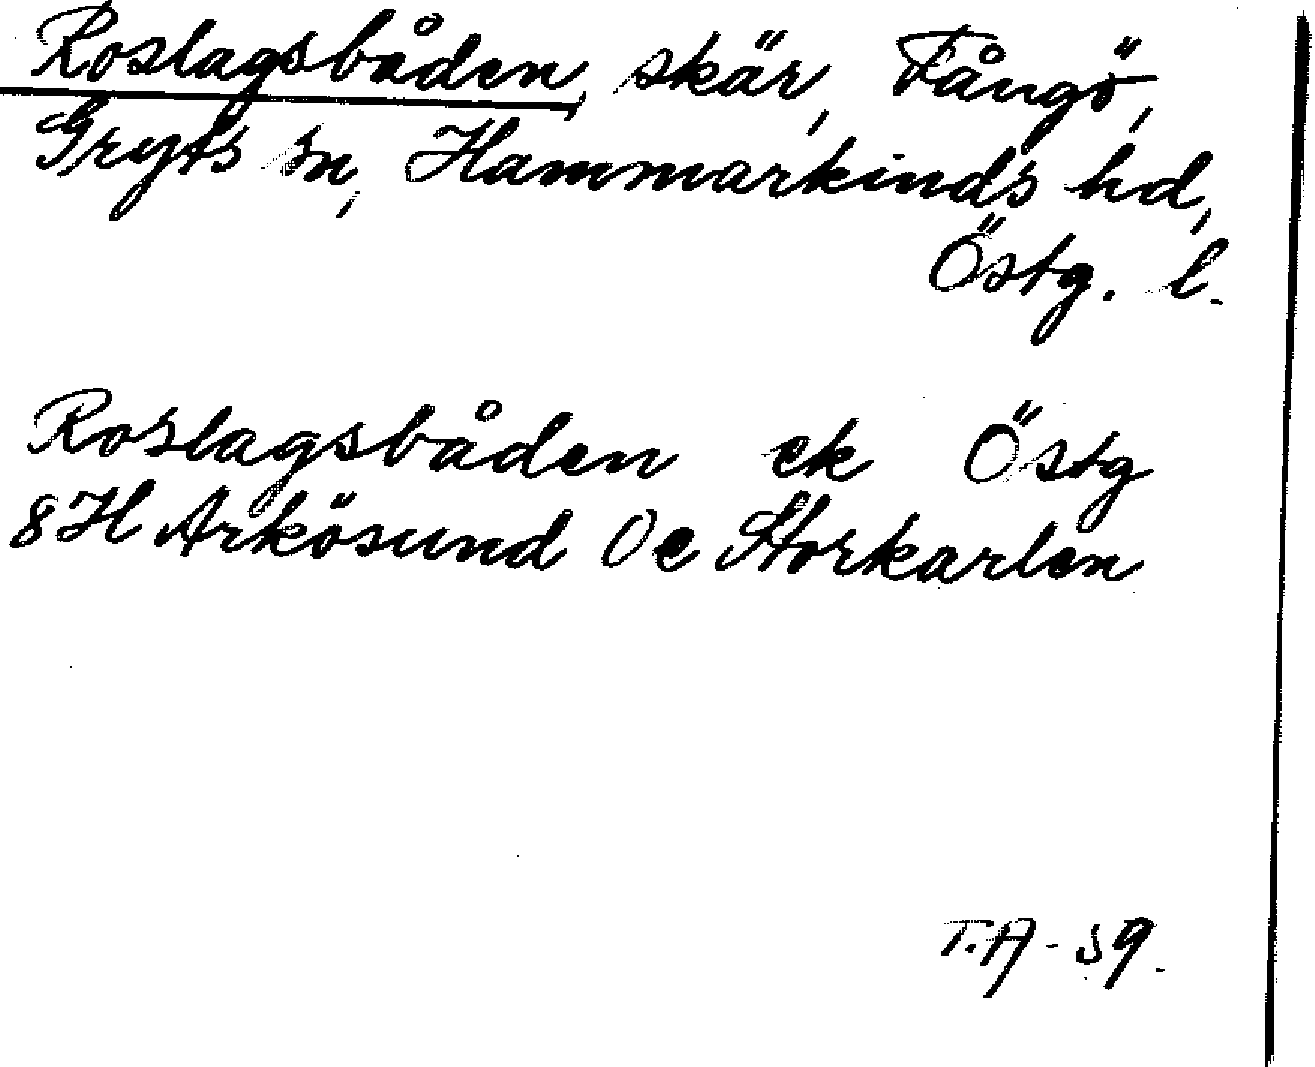 Roslagsbåden, skär, Fångö,
Gryts sn, Hammarkinds hd,
Östg. l.
Roslagsbåden ek Östg
8H Arkösund Oc Storkarlen
T.A - 59.